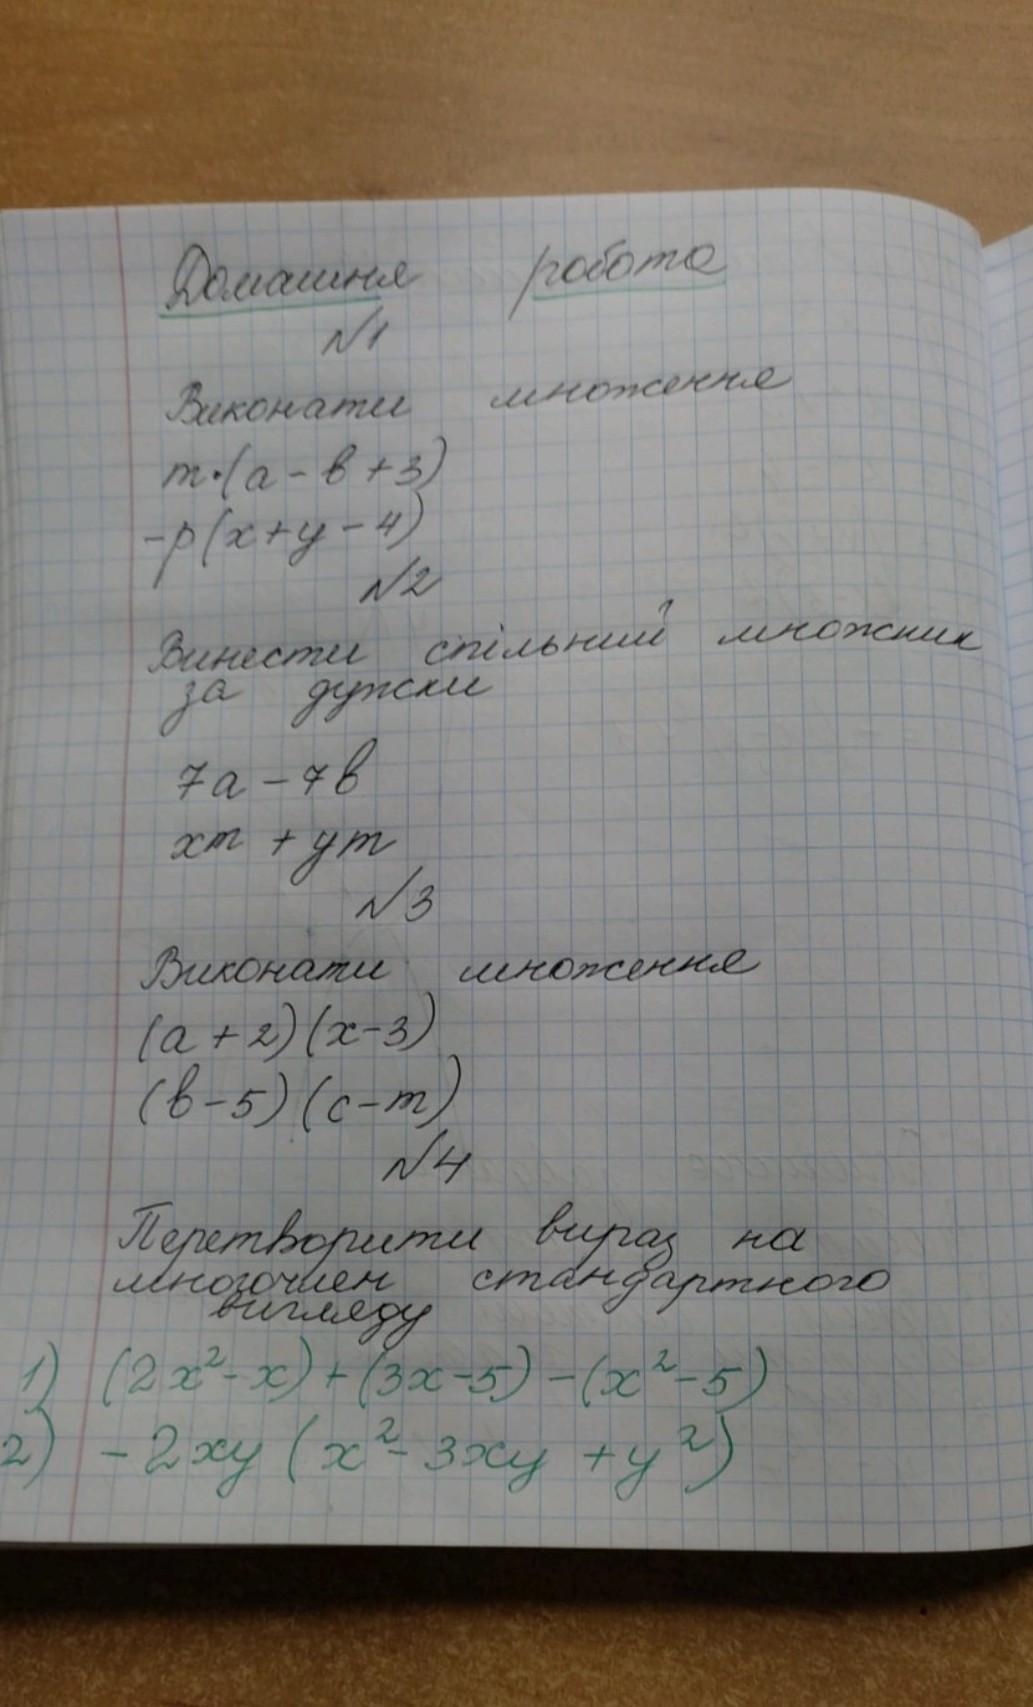 Домашня робота
№1
Виконати множення
m·(a - b + 3)
-p(x+y - 4)
№2
Винести спільний множник
за дужки
7a - 7b
xm + ym
№3
Виконати множення
(a + 2)(x-3)
(b-5)(c-m)
№4
Перетворити вираз на
многочлен стандартного
вигляду
1) (2x²-x)+(3x-5)-(x²-5)
2) -2xy(x²-3xy+y²)